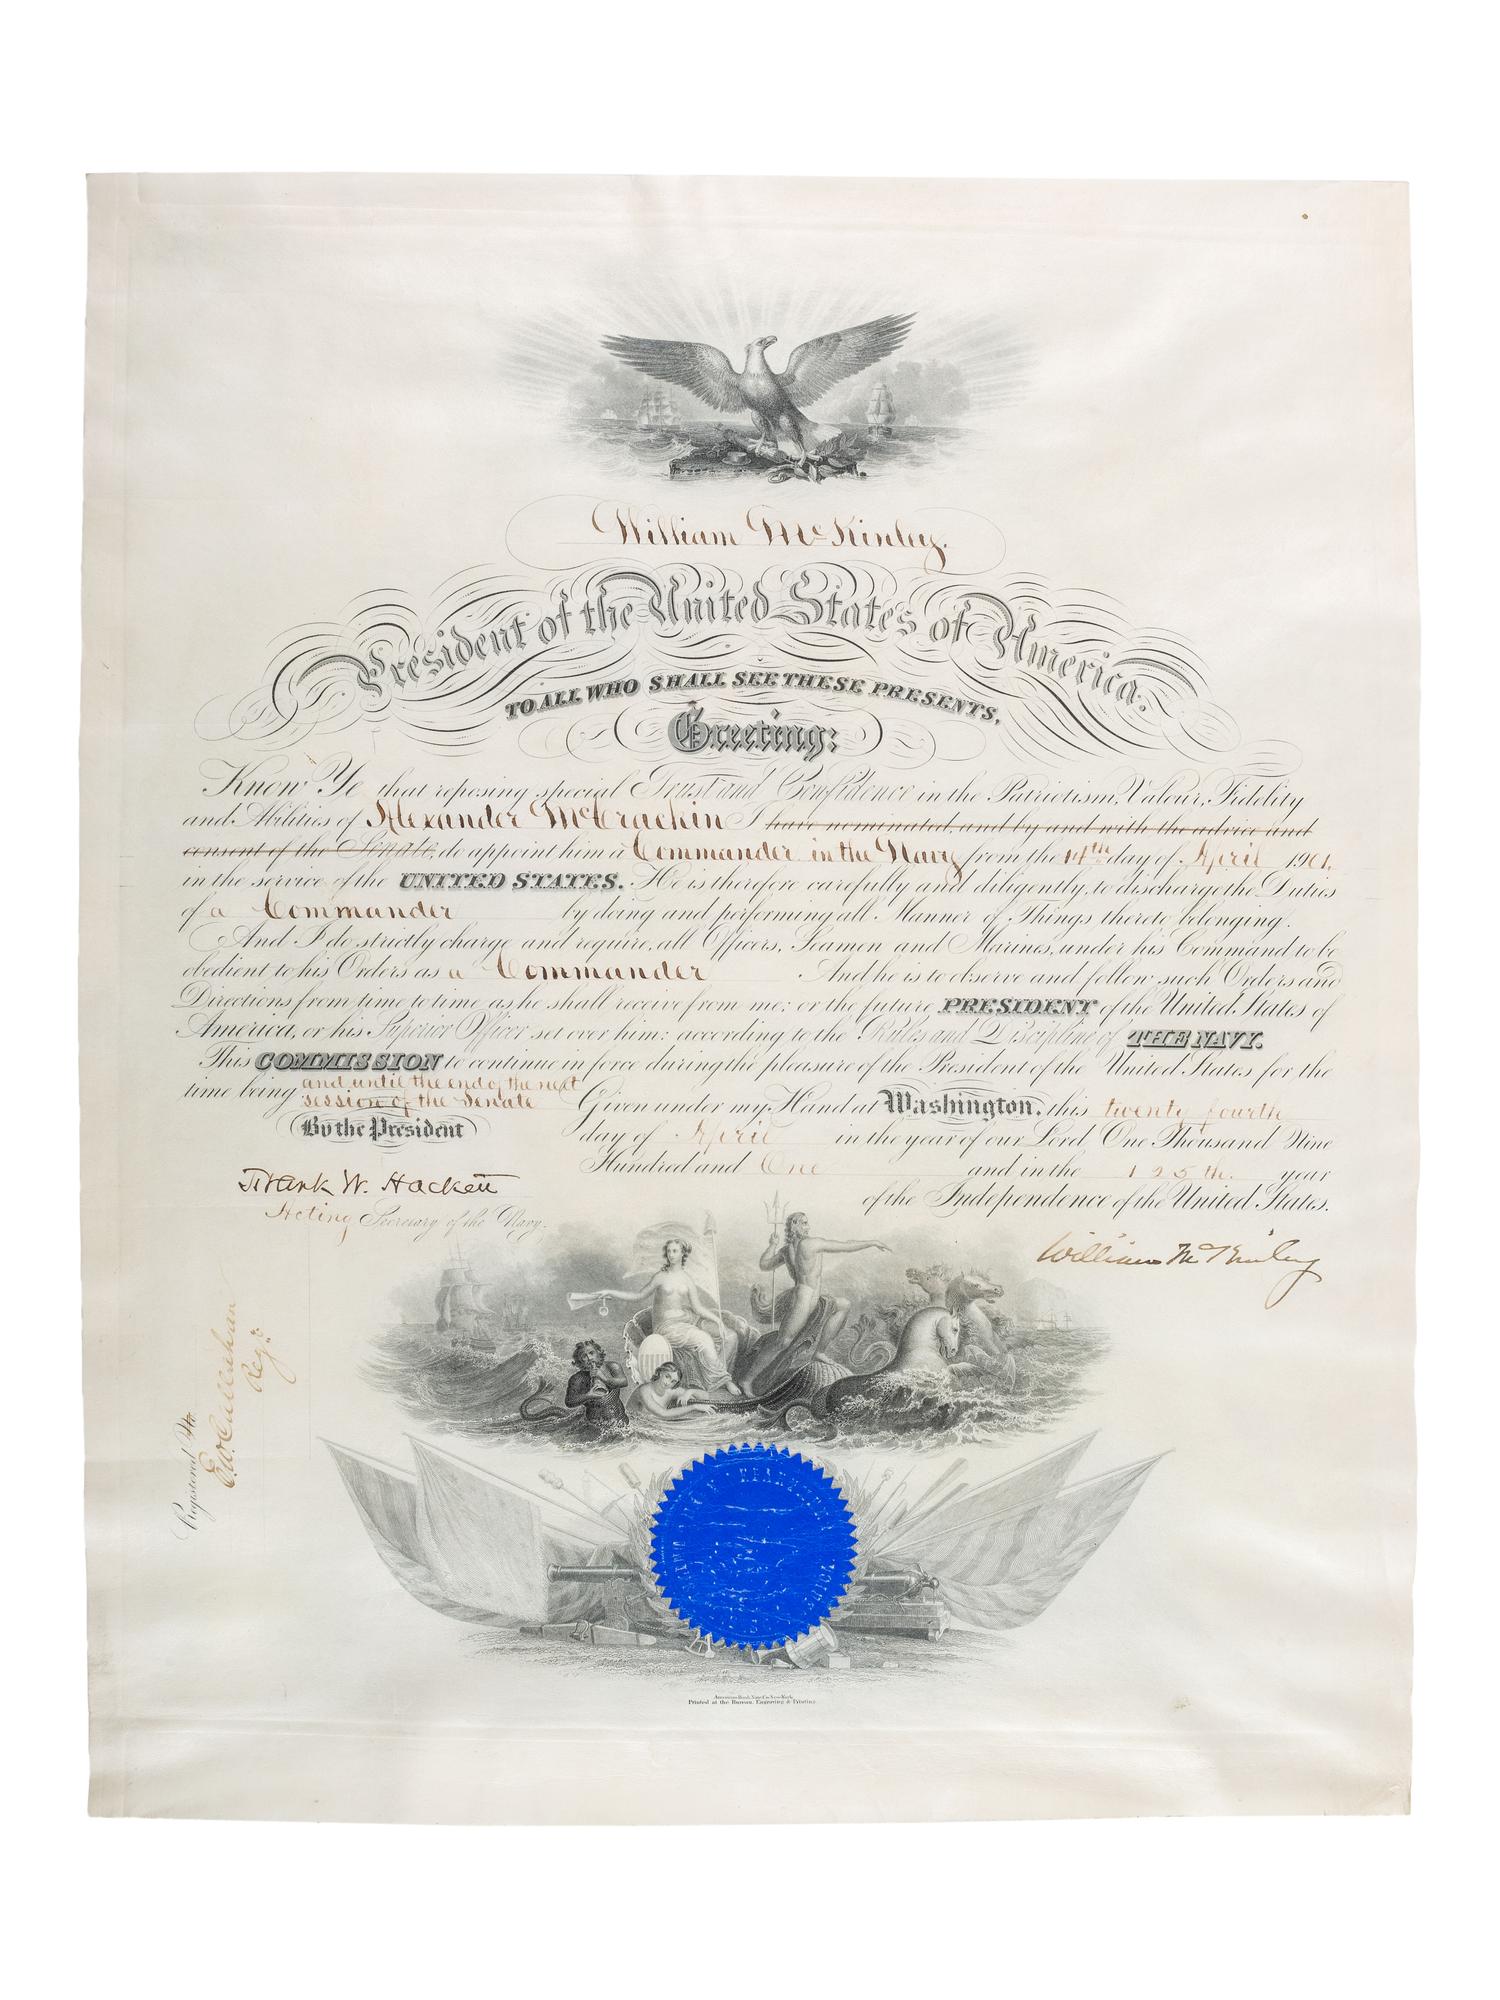 William McKinley.
President of the United States of America.
TO ALL WHO SHALL SEE THESE PRESENTS,
Greeting:
Know Ye, that reposing special Trust and Confidence in the Patriotism, Valour, Fidelity
and Abilities of Alexander McCrackin I have nominated, and by and with the advice and
consent of the Senate, do appoint him a Commander in the Navy from the 14th day of April 1901,
in the service of the UNITED STATES. He is therefore carefully and diligently, to discharge the Duties
of a Commander by doing and performing all Manner of Things thereto belonging.
And I do strictly charge and require, all Officers, Seamen and Marines, under his Command to be
obedient to his Orders as a Commander And he is to observe and follow such Orders and
Directions from time to time as he shall receive from me; or the future PRESIDENT of the United States of
America, or his Superior Officer set over him: according to the Rules and Discipline of THE NAVY.
This COMMISSION to continue in force during the pleasure of the President of the United States for the
time being and until the end of the next
session of the Senate
Given under my Hand at Washington, this twenty fourth
day of April in the year of our Lord One Thousand Nine
Hundred and One and in the 125th. year
of the Independence of the United States.
By the President
Frank W. Hackett
Acting Secretary of the Navy.
William McKinley
Registered No.
Reg.r
American Bank Note Co. New York.
Printed at the Bureau, Engraving & Printing.